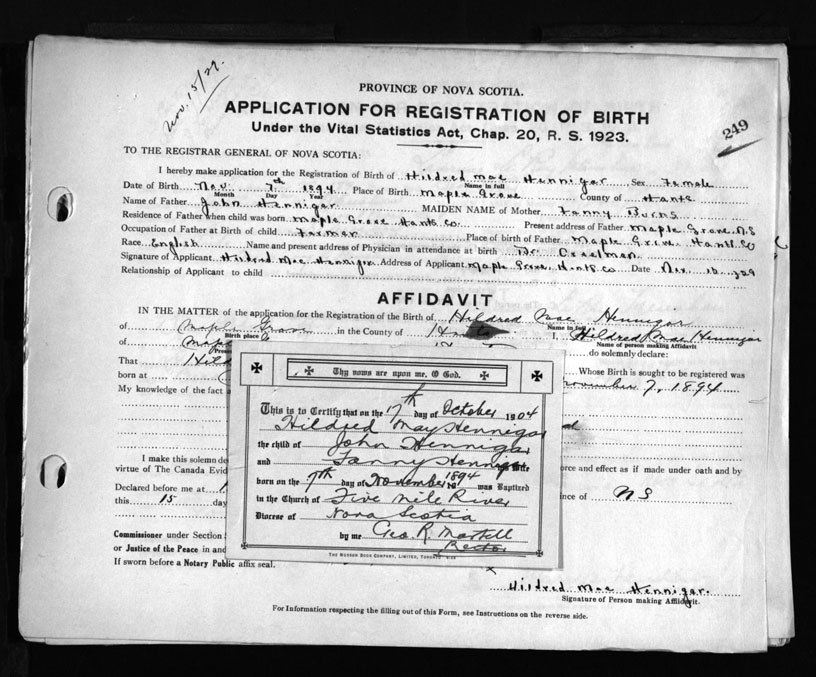 Nov. 15/29.
PROVINCE OF NOVA SCOTIA.
APPLICATION FOR REGISTRATION OF BIRTH
Under the Vital Statistics Act, Chap. 20, R. S. 1923.
249
TO THE REGISTRAR GENERAL OF NOVA SCOTIA:
I hereby make application for the Registration of Birth of Hildred Mae Hennigar Sex Female
Name in full
Date of Birth Nov. 7th 1894 Place of Birth Maple Grove County of Hants
Month Day Year
Name of Father John Hennigar MAIDEN NAME of Mother Fanny Burns
Residence of Father when child was born Maple Grove Hants Co. Present address of Father Maple Grove N.S
Occupation of Father at Birth of child Farmer Place of birth of Father Maple Grove Hants Co
Race English Name and present address of Physician in attendance at birth Dr.
Signature of Applicant Hildred Mae Hennigar Address of Applicant Maple Grove Hants Co Date Nov. 29
Relationship of Applicant to child
AFFIDAVIT
IN THE MATTER of the application for the Registration of the Birth of Hildred Mae Hennigar
Name in full
of Maple Grove in the County of I, Hildred Mae Hennigar
Birth place Name of person making Affidavit
of do solemnly declare:
That Whose Birth is sought to be registered was
born at November 7, 1894
My knowledge of the fact
Thy vows are upon me, O God.
This is to Certify that on the 17th day of October 1904
Hildred May Hennigar
the child of John Hennigar
and Fanny Hennigar wife
born on the 7th day of November 1894 was Baptized
in the Church of Five Mile River
Diocese of Nova Scotia
by me Geo. R. Martell
Rector
THE MUSSON BOOK COMPANY, LIMITED, TORONTO
I make this solemn force and effect as if made under oath and by
virtue of The Canada
Declared before me at Province of N S
this 15 day
Commissioner under Section
or Justice of the Peace in and
If sworn before a Notary Public affix seal.
Hildred Mae Hennigar.
Signature of Person making Affidavit.
For Information respecting the filling out of this Form, see Instructions on the reverse side.